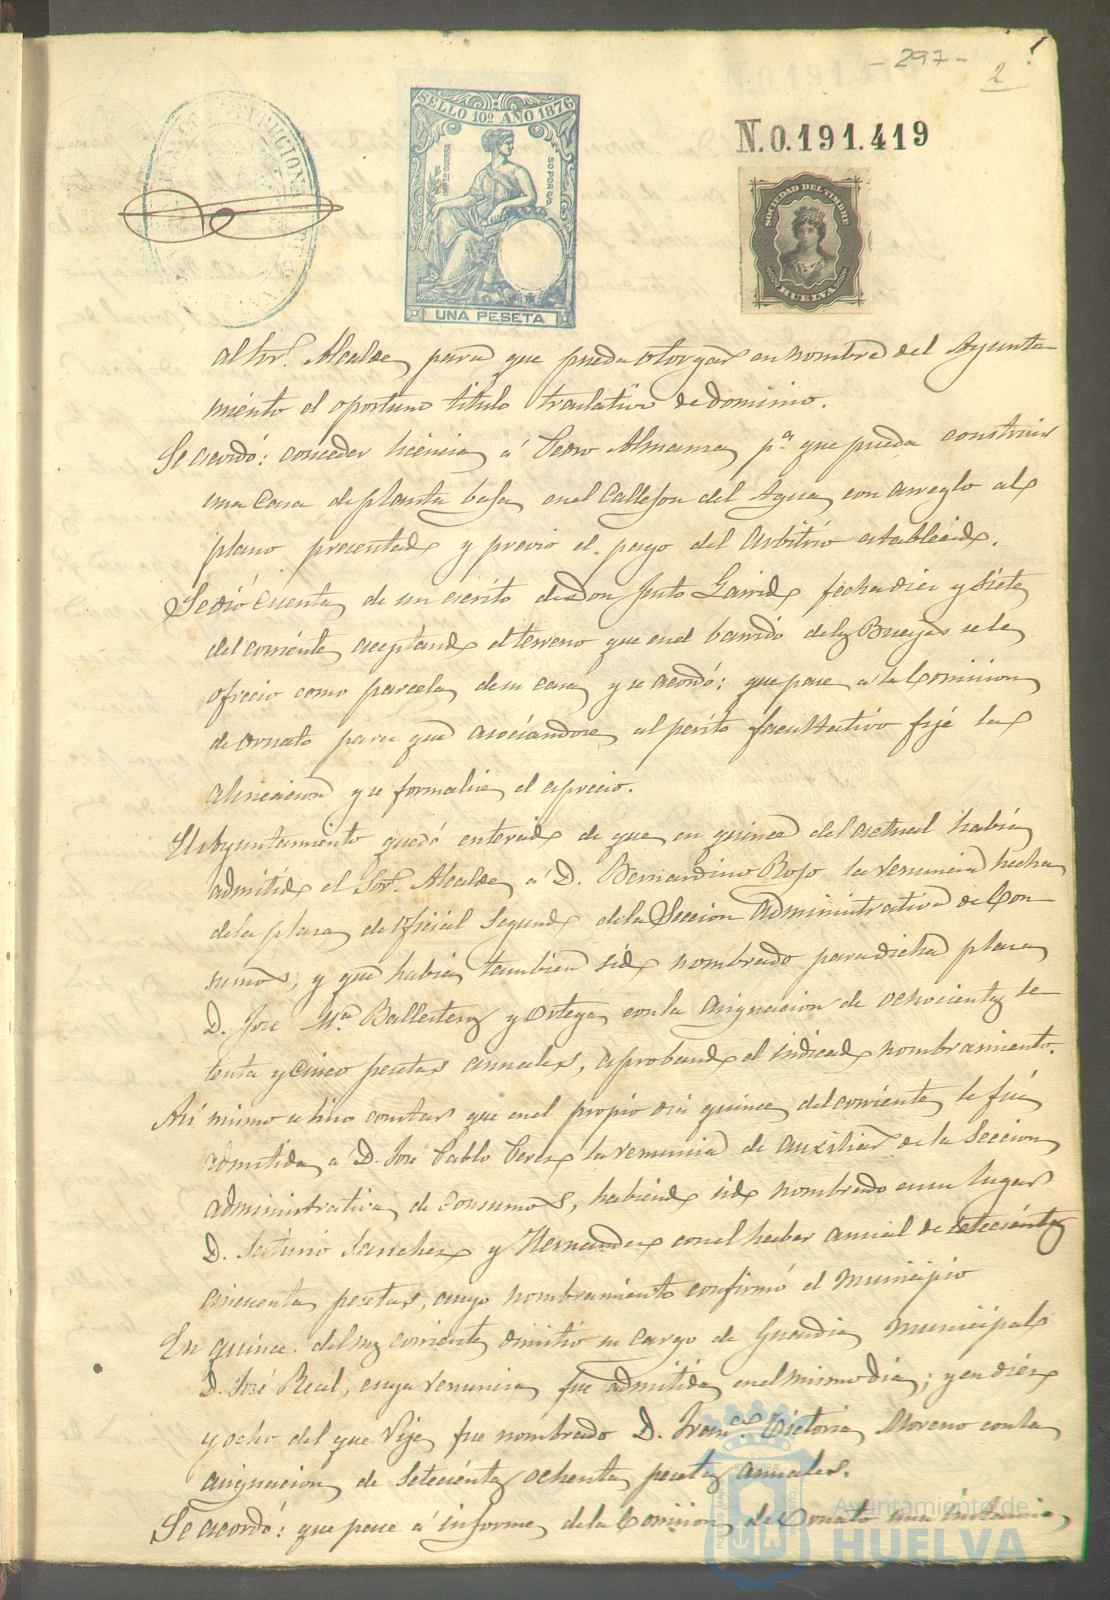 - 297 -
2
SELLO 10º AÑO 1876
UNA PESETA
N.0.191.419
SOCIEDAD DEL TIMBRE
HUELVA
al Sor. Alcalde para que pueda otorgar en nombre del Ayunta
miento el oportuno titulo traslativo de dominio.
Se acordó: conceder licencia á Pedro Almansa pa. que pueda construir
una Casa de planta baja en el Callejon del Agua con arreglo al
plano presentado y previo el pago del Arbitrio establecido.
Se dió cuenta de un escrito de Don Justo Garrido fecha diez y siete
del corriente aceptando el terreno que en el barrio de los Bueyes se le
ofrecio como parcela de su casa y se acordó: que pase a la Comision
de ornato para que asociándose al perito facultativo fije la
alineacion y se formalice el aprecio.
El Ayuntamiento quedó enterado de que en quince del actual habia
admitido el Sor. Alcalde a D. Bernardino Rojo la renuncia hecha
de la plaza de Oficial Segundo de la Seccion Administrativa de Con
sumos, y que habia tambien sido nombrado para dicha plaza
D. José Mª Ballesteros y Ortega con la asignacion de ochocientas se
tenta y cinco pesetas anuales, aprobando el indicado nombramiento.
Asi mismo se hizo constar que en el propio dia quince del corriente le fué
admitida a D. José Pablo Perez la renuncia de auxiliar de la Seccion
administrativa de Consumos, habiendo sido nombrado en su lugar
D. Saturio Sanchez y Hernandez con el haber anual de setecientas
cincuenta pesetas, cuyo nombramiento confirmó el Municipio
En quince del mes corriente dimitió su cargo de Guardia Municipal
D. José Real, cuya renuncia fue admitida en el mismo dia; y en diez
y ocho del que rije fue nombrado D. Franco. Victoria Moreno con la
asignacion de setecientas ochenta pesetas anuales.
Se acordó: que pase á informe de la Comision de Ornato una instancia
Ayuntamiento de
HUELVA